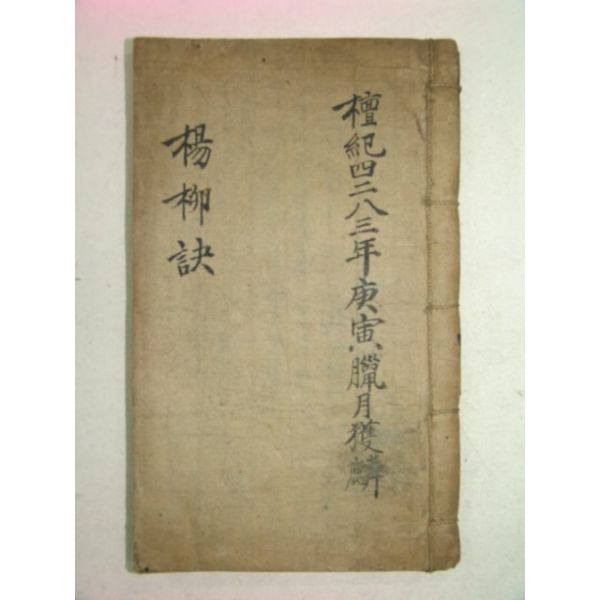 檀紀四二八三年庚寅臘月獲麟
楊柳訣